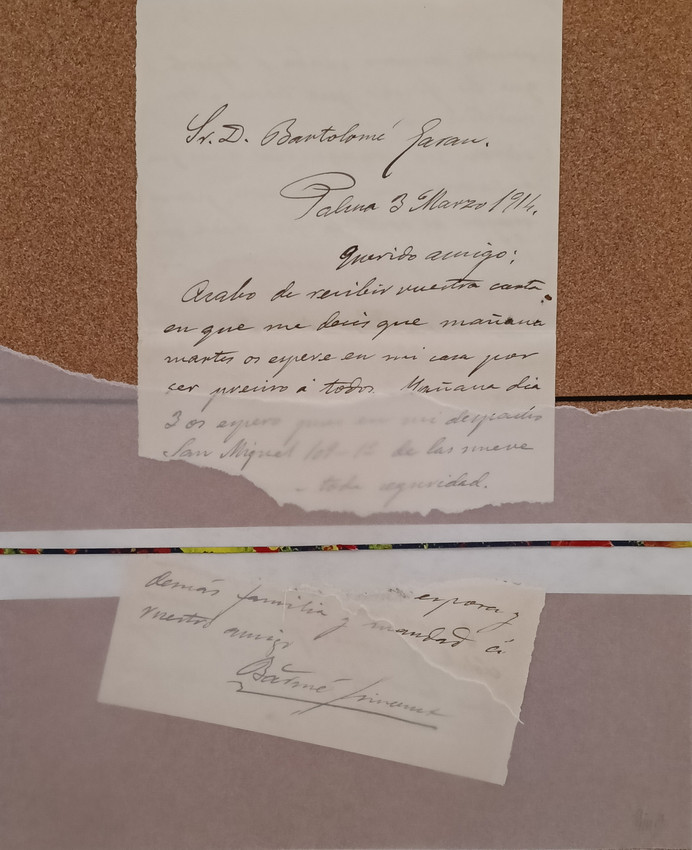 Sr. D. Bartolomé Garau.
Palma 3 Marzo 1914.
Querido amigo:
Acabo de recibir vuestra carta
en que me decis que mañana
martes os espere en mi casa por
ser preciso á todos. Mañana dia
3 os espero pues en mi despacho
San Miguel de las nueve
toda seguridad.
esposa y
demás familia y mandad á
vuestro amigo
Barmé